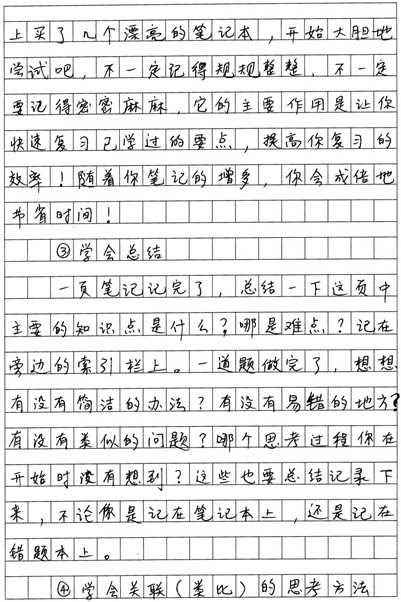 上买了几个漂亮的笔记本，开始大胆地
尝试吧，不一定记得规规整整，不一定
要记得密密麻麻，它的主要作用是让你
快速复习已学过的要点，提高你复习的
效率！随着你笔记的增多，你会成倍地
节省时间！
③学会总结
一页笔记记完了，总结一下这页中
主要的知识点是什么？哪是难点？记在
旁边的索引栏上。一道题做完了，想想
有没有简洁的办法？有没有易错的地方？
有没有类似的问题？哪个思考过程你在
开始时没有想到？这些也要总结记录下
来，不论你是记在笔记本上，还是记在
错题本上。
④学会关联（类比）的思考方法